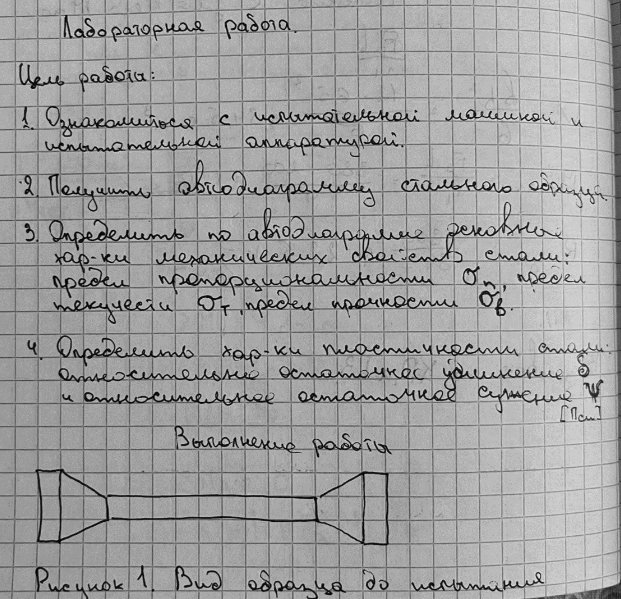 Лабораторная работа.
Цель работы:
1. Ознакомиться с испытательной машиной и
испытательной аппаратурой.
2. Получить автодиаграмму стального образца
3. Определить по автодиаграмме основные
хар-ки механических свойств стали:
предел пропорциональности σп, предел
текучести σт, предел прочности σв.
4. Определить хар-ки пластичности стали:
относительное остаточное удлинение δ
и относительное остаточное сужение ψ
[Пси]
Выполнение работы
Рисунок 1. Вид образца до испытания